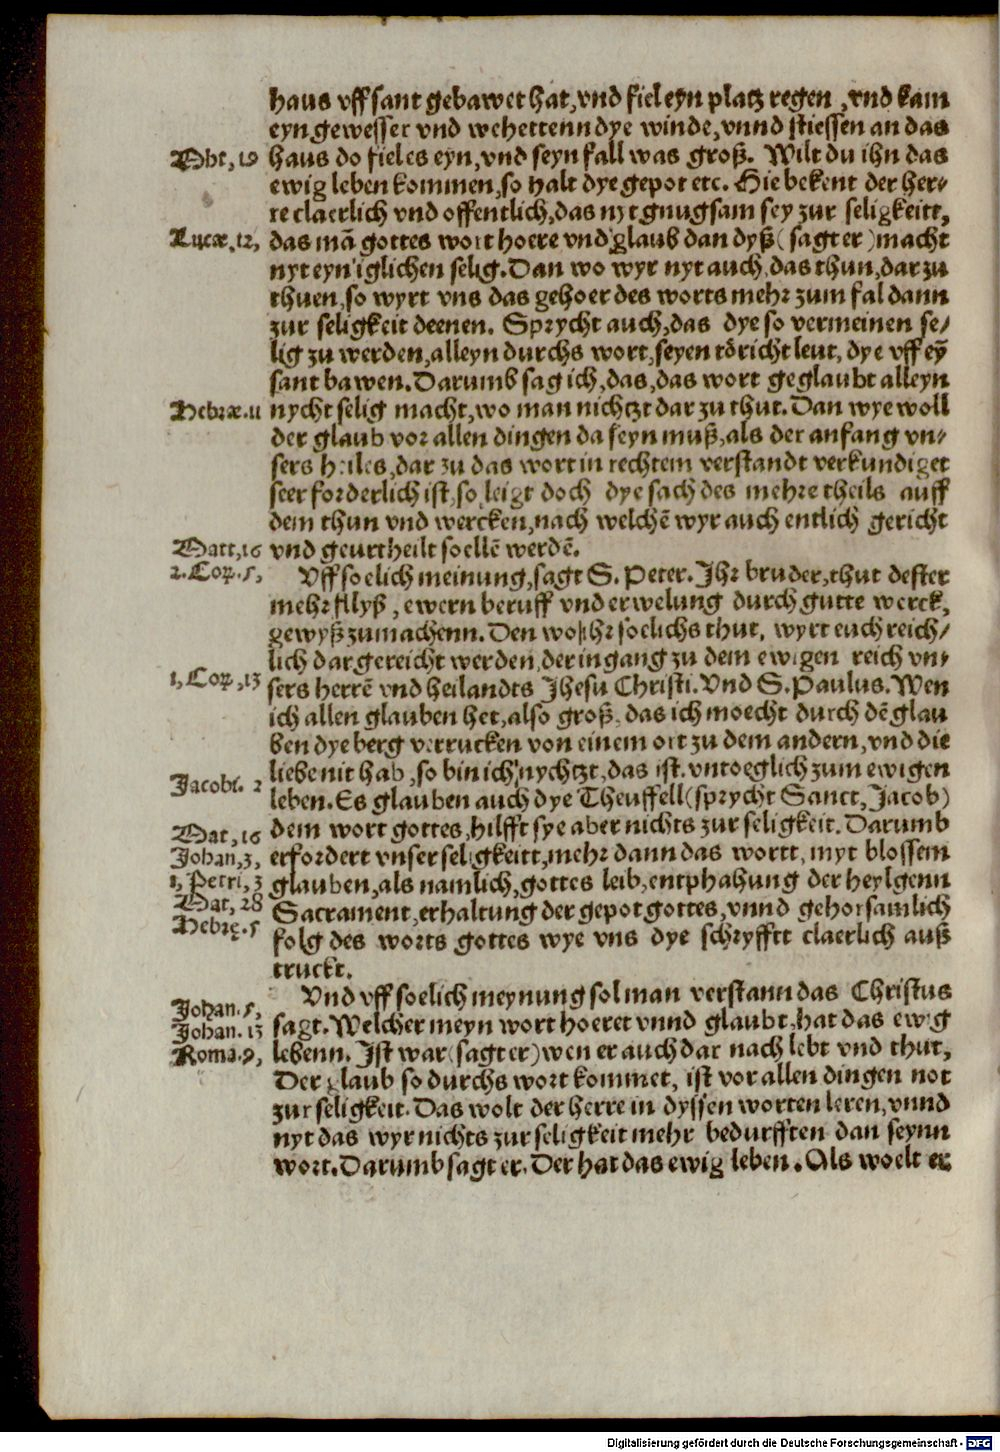 haus vff sant gebawet hat, vnd fiel eyn platz regen, vnd kam
eyn gewesser vnd wehettenn dye winde, vnnd stiessen an das
Mht, 19
haus do fiel es eyn, vnd seyn fall was groß. Wilt du ihn das
ewig leben kommen, so halt dye gepot etc. Hie bekent der her⸗
re claerlich vnd offentlich, das nyt gnugsam sey zur seligkeitt,
Lucæ, 12,
das mā gottes wort hoere vnd glaub dan dyß (sagt er) macht
nyt eyn iglichen selig. Dan wo wyr nyt auch das thun, dar zu
thuen, so wyrt vns das gehoer des worts mehr zum fal dann
zur seligkeit deenen. Sprycht auch, das dye so vermeinen se⸗
lig zu werden, alleyn durchs wort, seyen tőricht leut, dye vff eȳ
sant bawen. Darumb sag ich, das, das wort geglaubt alleyn
Hebræ. 11
nycht selig macht, wo man nichtzt dar zu thut. Dan wye woll
der glaub vor allen dingen da seyn muß, als der anfang vn⸗
sers heiles, dar zu das wort in rechtem verstandt verkundiget
seer forderlich ist, so leigt doch dye sach des mehre theils auff
dem thun vnd wercken, nach welchē wyr auch entlich gericht
Matt, 16
vnd geurtheilt soellē werdē.
2. Cor. 5,
Vff soelich meinung, sagt S. Peter. Ihr bruder, thut dester
mehr flyß, ewern beruff vnd erwelung durch gutte werck,
gewyß zumachenn. Den wo ihr soelichs thut, wyrt euch reich⸗
lich dargereicht werden, der ingang zu dem ewigen reich vn⸗
1, Cor, 13
sers herrē vnd heilandts Jhesu Christi. Vnd S. Paulus. Wen
ich allen glauben het, also groß, das ich moecht durch dē glau
ben dye berg verrucken von einem ort zu dem andern, vnd die
liebe nit hab, so bin ich nychtzt, das ist. vntoeglich zum ewigen
Jacobi. 2
leben. Es glauben auch dye Theuffell (sprycht Sanct, Jacob)
Mat, 16
dem wort gottes, hilfft sye aber nichts zur seligkeit. Darumb
Johan, 3,
erfordert vnser seligkeitt, mehr dann das wortt, myt blossem
1, Petri, 3
glauben, als namlich, gottes leib, entphahung der heylgenn
Mat, 28
Sacrament, erhaltung der gepot gottes, vnnd gehorsamlich
Hebrę. 5
folg des worts gottes wye vns dye schryfftt claerlich auß
truckt.
Vnd vff soelich meynung sol man verstann das Christus
Johan. 5,
sagt. Welcher meyn wort hoeret vnnd glaubt, hat das ewig
Johan. 13
Roma. 9,
lebenn. Ist war (sagt er) wen er auch dar nach lebt vnd thut,
Der glaub so durchs wort kommet, ist vor allen dingen not
zur seligkeit. Das wolt der herre in dyssen worten leren, vnnd
nyt das wyr nichts zur seligkeit mehr bedurfften dan seynn
wort. Darumb sagt er. Der hat das ewig leben. Als woelt er
Digitalisierung gefördert durch die Deutsche Forschungsgemeinschaft - DFG